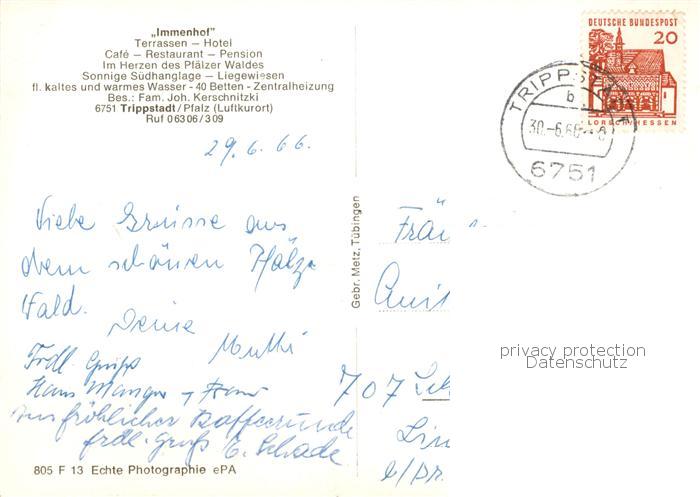 „Immenhof"
Terrassen – Hotel
Café – Restaurant – Pension
Im Herzen des Pfälzer Waldes
Sonnige Südhanglage – Liegewiesen
fl. kaltes und warmes Wasser - 40 Betten - Zentralheizung
Bes.: Fam. Joh. Kerschnitzki
6751 Trippstadt/Pfalz (Luftkurort)
Ruf 06306/309
29.6.66.
Viele Grüsse aus
dem schönen Pfälzer
Wald.
Deine
Mutti
Frdl. Gruß
Hans + Frau
Aus fröhlicher Kaffeerunde
frdl. Gruß E. Schade
805 F 13 Echte Photographie ePA
Gebr. Metz, Tübingen
DEUTSCHE BUNDESPOST
20
LORSCH/HESSEN
TRIPPSTADT
b
30.-6.66
6751
Fräu
707
Lin
b/Dr.
privacy protection
Datenschutz